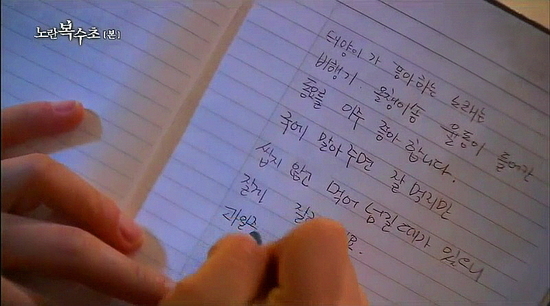 노란복수초 [본]
태양이가 좋아하는 노래는
비행기. 올챙이송 율동이 들어간
동요를 아주 좋아합니다.
국에 말아주면 잘 먹지만
씹지 않고 먹어 넘길 때가 있으니
잘게
과일은